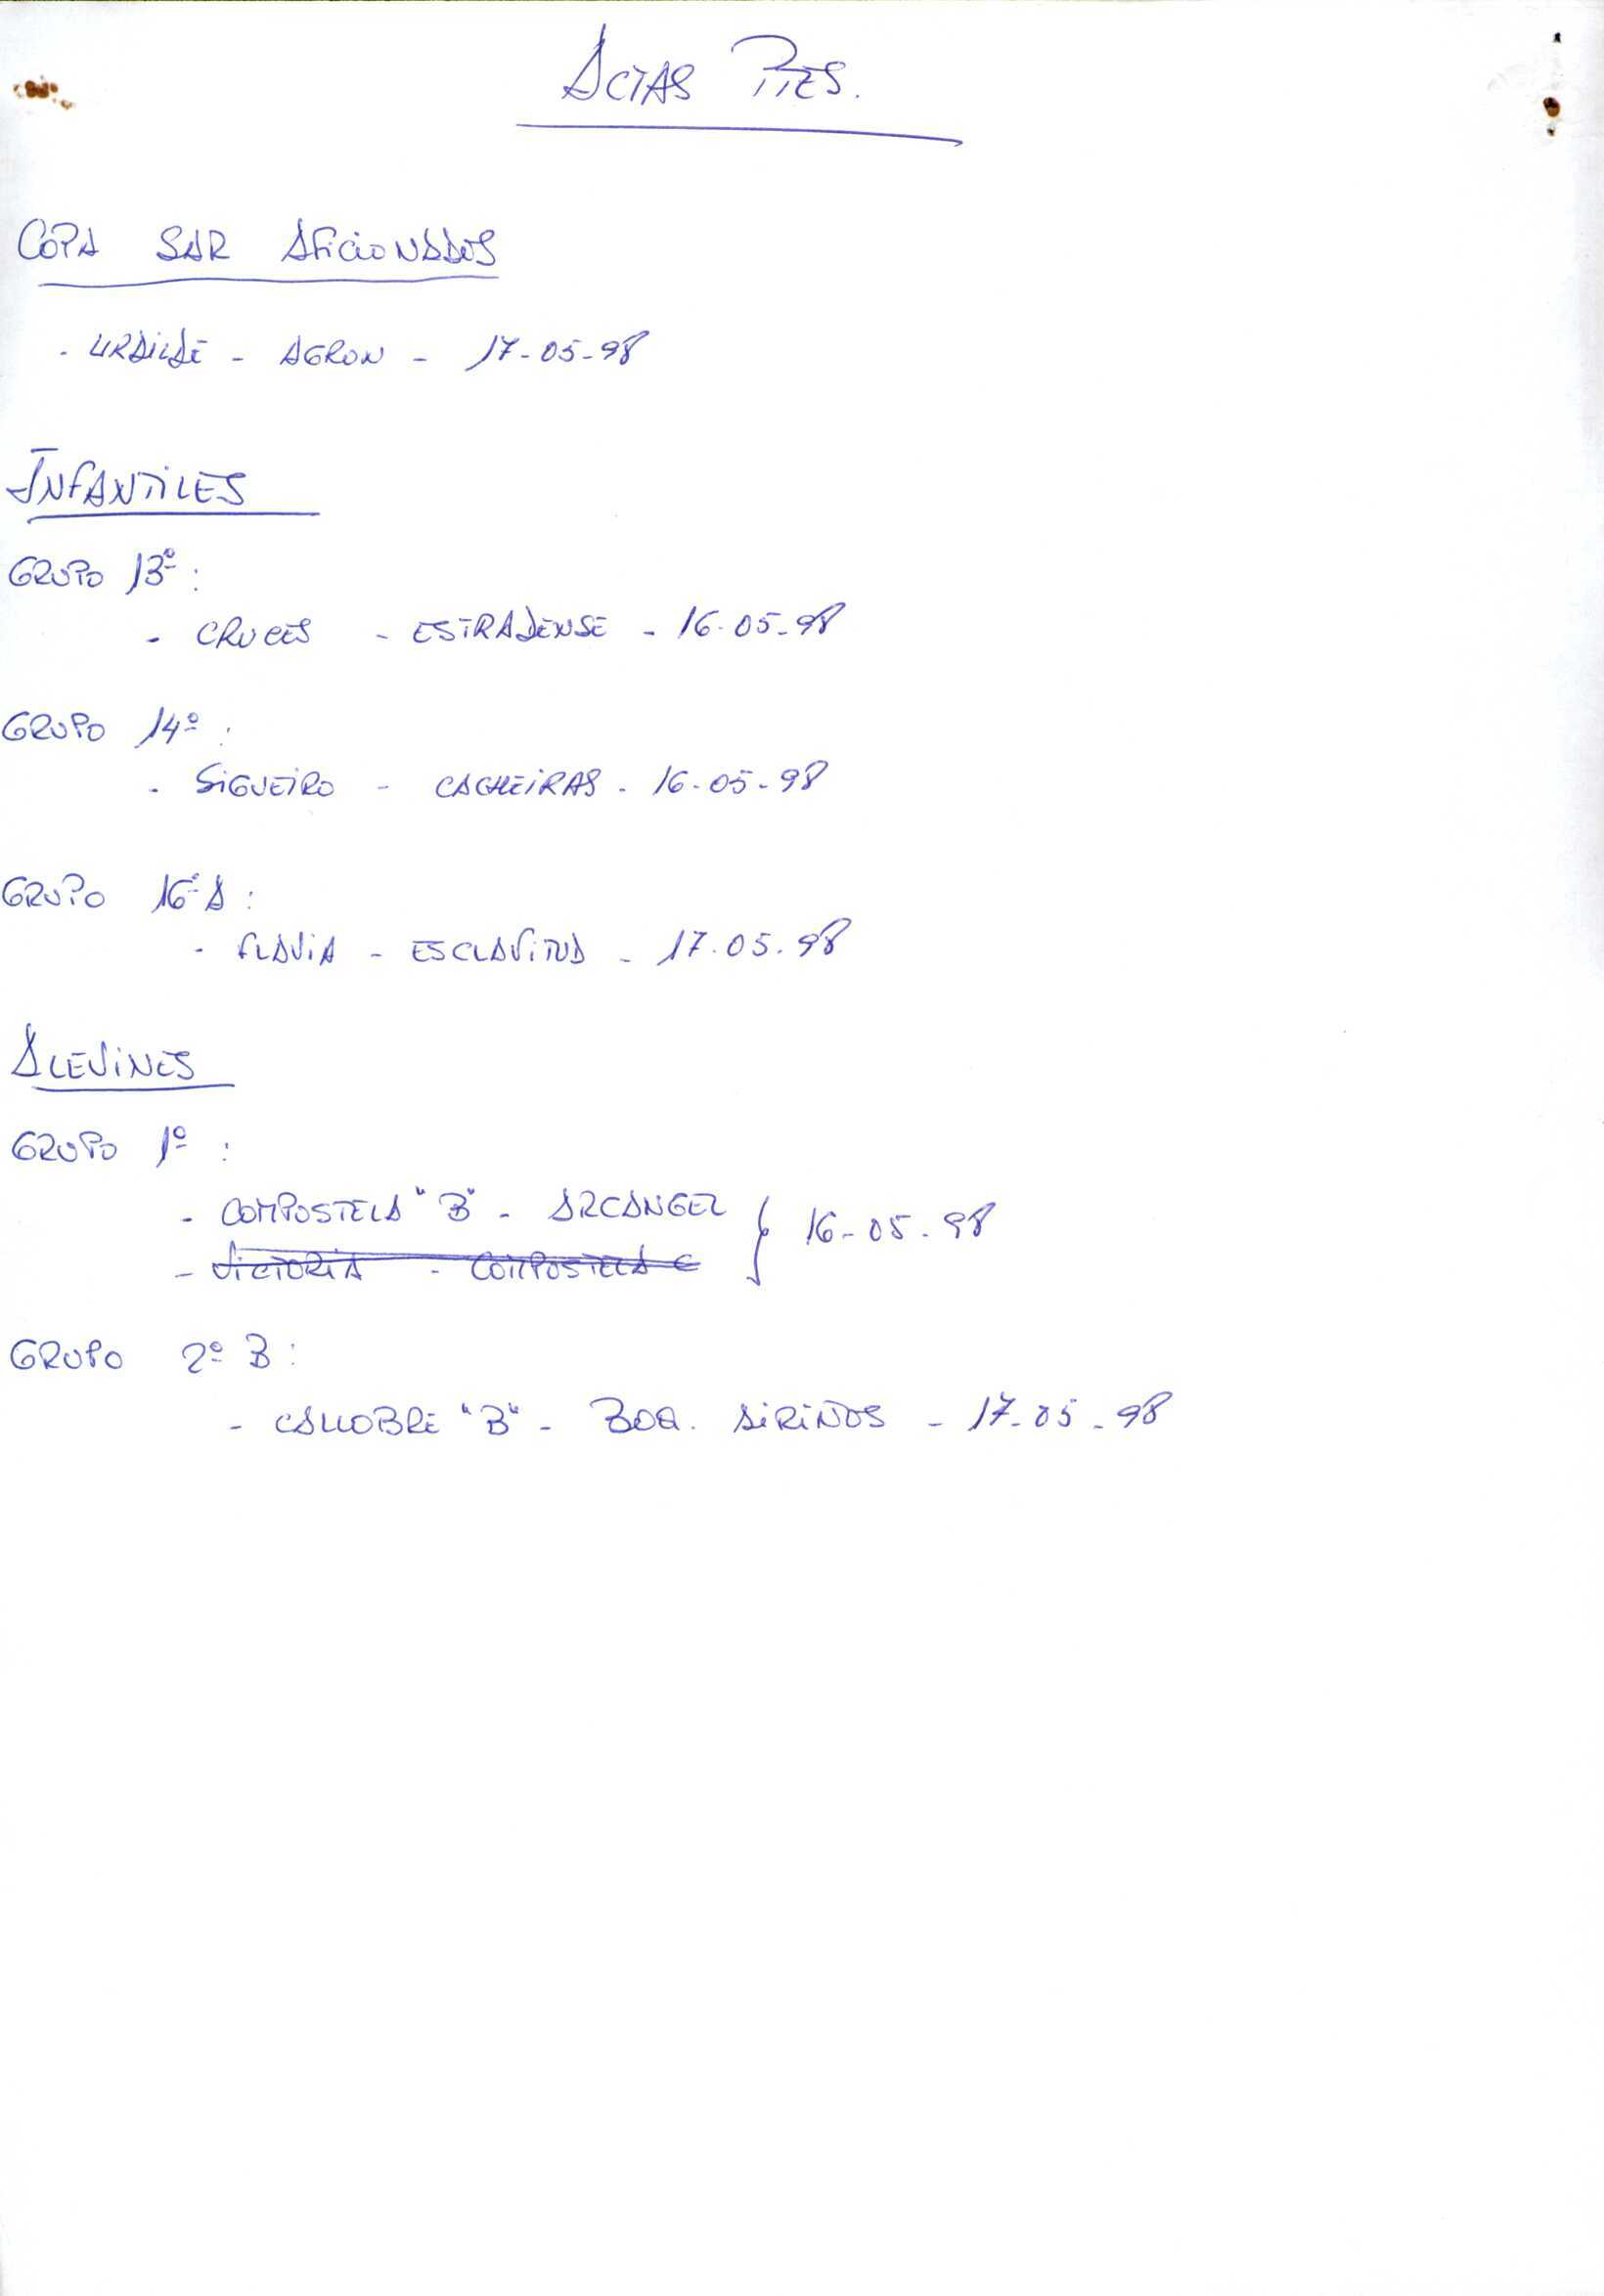 ACTAS PTES.
COPA SAR AFICIONADOS
- URDILDE - AGRON - 17-05-98
INFANTILES
GRUPO 13º:
- CRUCES - ESTRADENSE - 16-05-98
GRUPO 14º:
- SIGUEIRO - CACHEIRAS - 16-05-98
GRUPO 16º A:
- FLAVIA - ESCLAVITUD - 17-05-98
ALEVINES
GRUPO 1º:
- COMPOSTELA "B" - ARCANGEL } 16-05-98
- VICTORIA - COMPOSTELA C
GRUPO 2º B:
- CALLOBRE "B" - BOQ. AIRIÑOS - 17-05-98